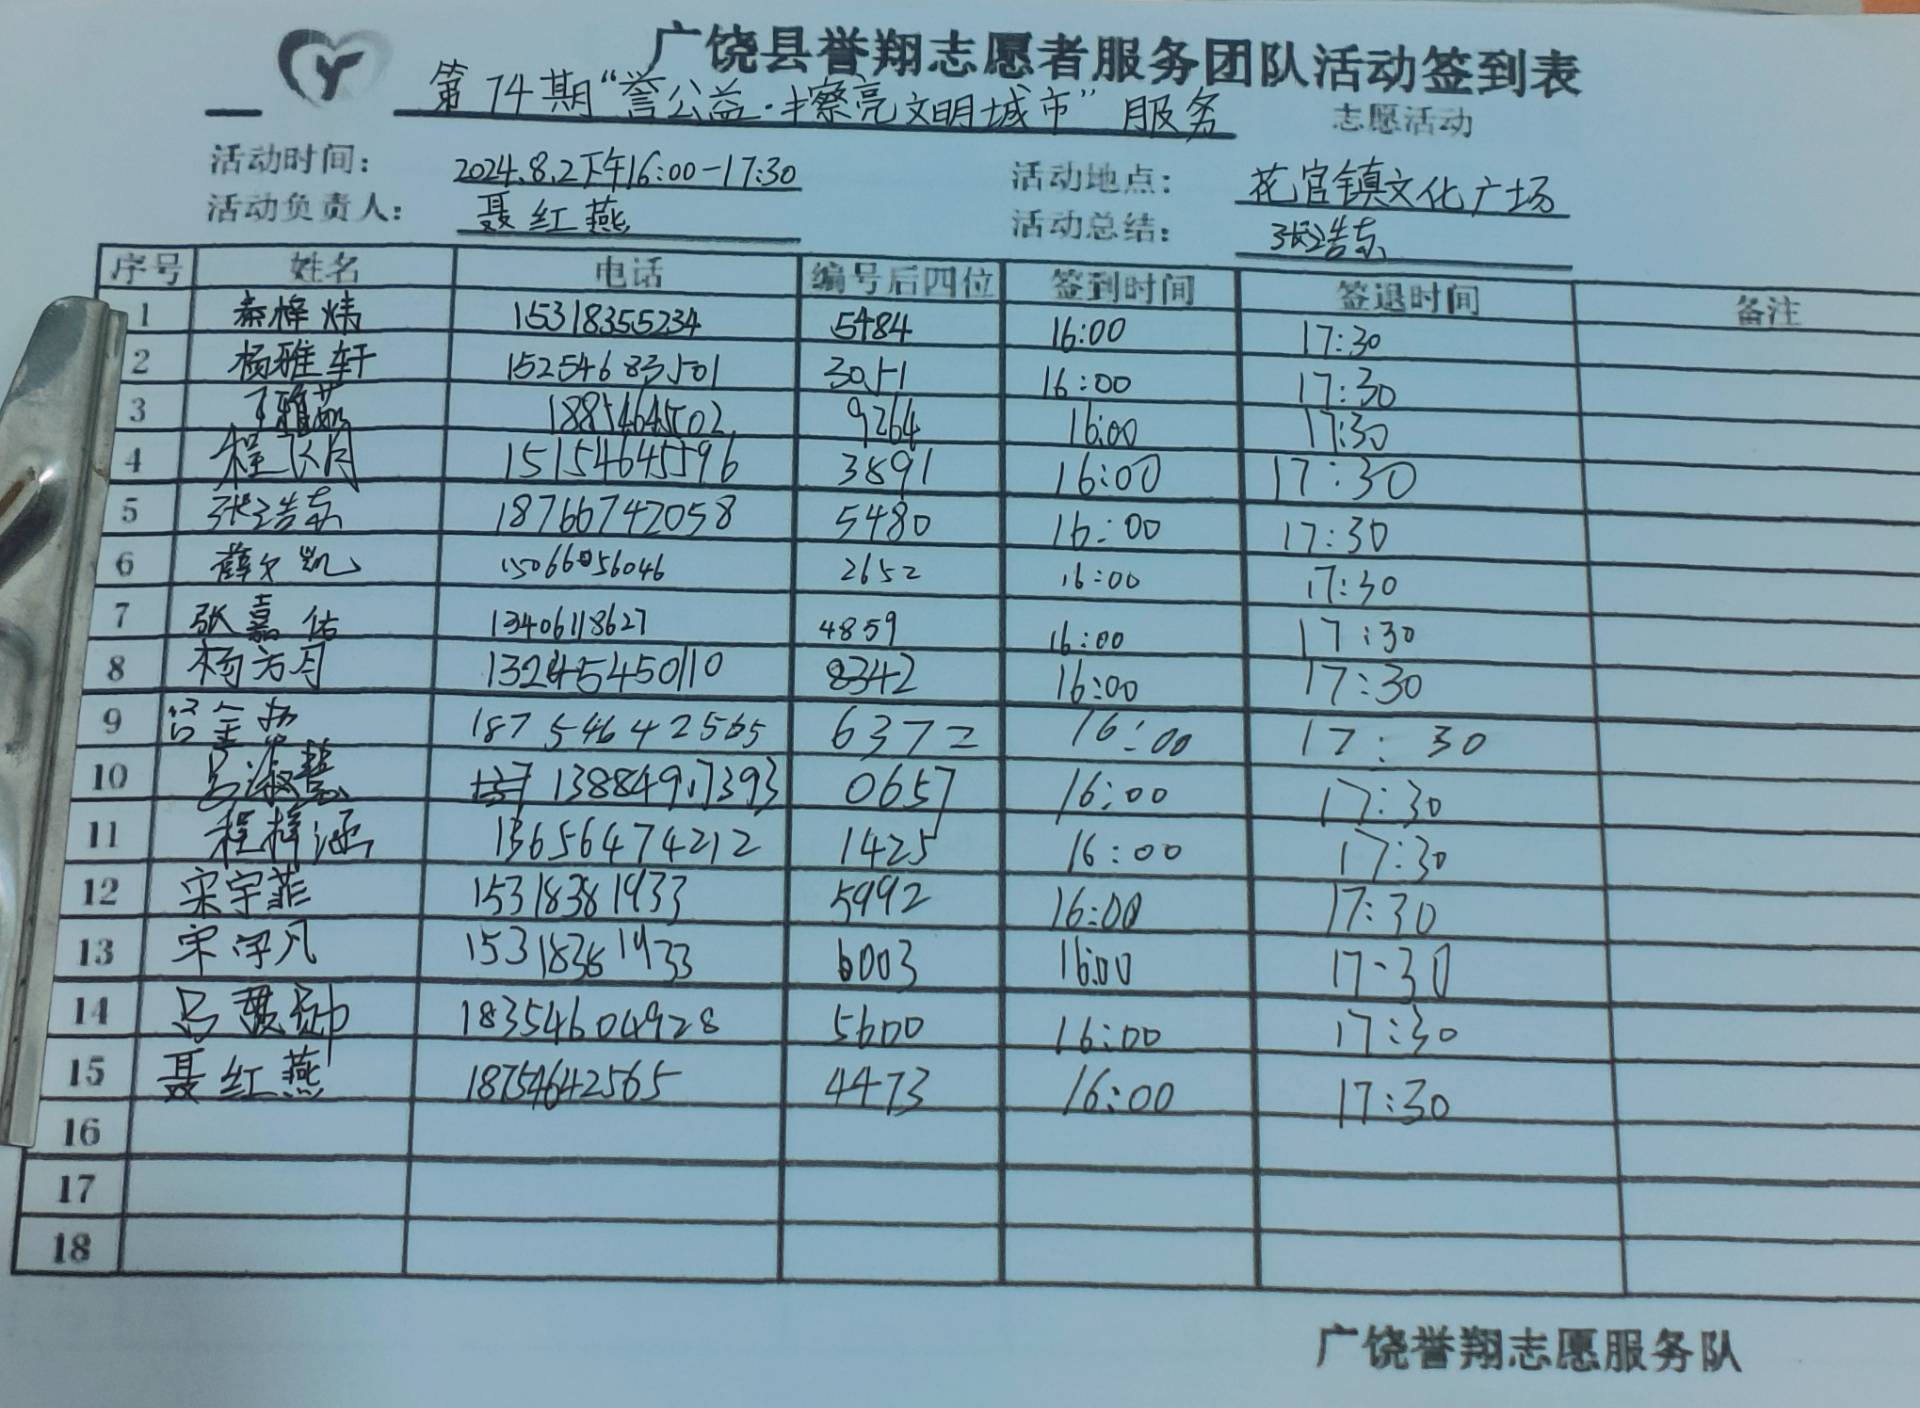 广饶县誉翔志愿者服务团队活动签到表
第74期“誉公益·擦亮文明城市”服务 志愿活动
活动时间： 2024.8.2下午16:00-17:30 活动地点： 花官镇文化广场
活动负责人： 聂红燕 活动总结： 张浩东
序号 姓名 电话 编号后四位 签到时间 签退时间 备注
1 秦梓炜 15318355234 5484 16:00 17:30
2 杨雅轩 15254683501 3051 16:00 17:30
3 丁雅茹 18854645502 9264 16:00 17:30
4 程 月 15154645596 3891 16:00 17:30
5 张浩东 18766742058 5480 16:00 17:30
6 薛文凯 15066056046 2652 16:00 17:30
7 张嘉佑 13406118627 4859 16:00 17:30
8 杨方月 8342 16:00 17:30
9 18754642565 6372 16:00 17:30
10 吕淑慧 13884917393 0657 16:00 17:30
11 程梓涵 13656474212 1425 16:00 17:30
12 宋宇菲 15318381933 5992 16:00 17:30
13 宋宇凡 6003 16:00 17:30
14 18354604928 5600 16:00 17:30
15 聂红燕 18754642565 4473 16:00 17:30
16
17
18
广饶誉翔志愿服务队